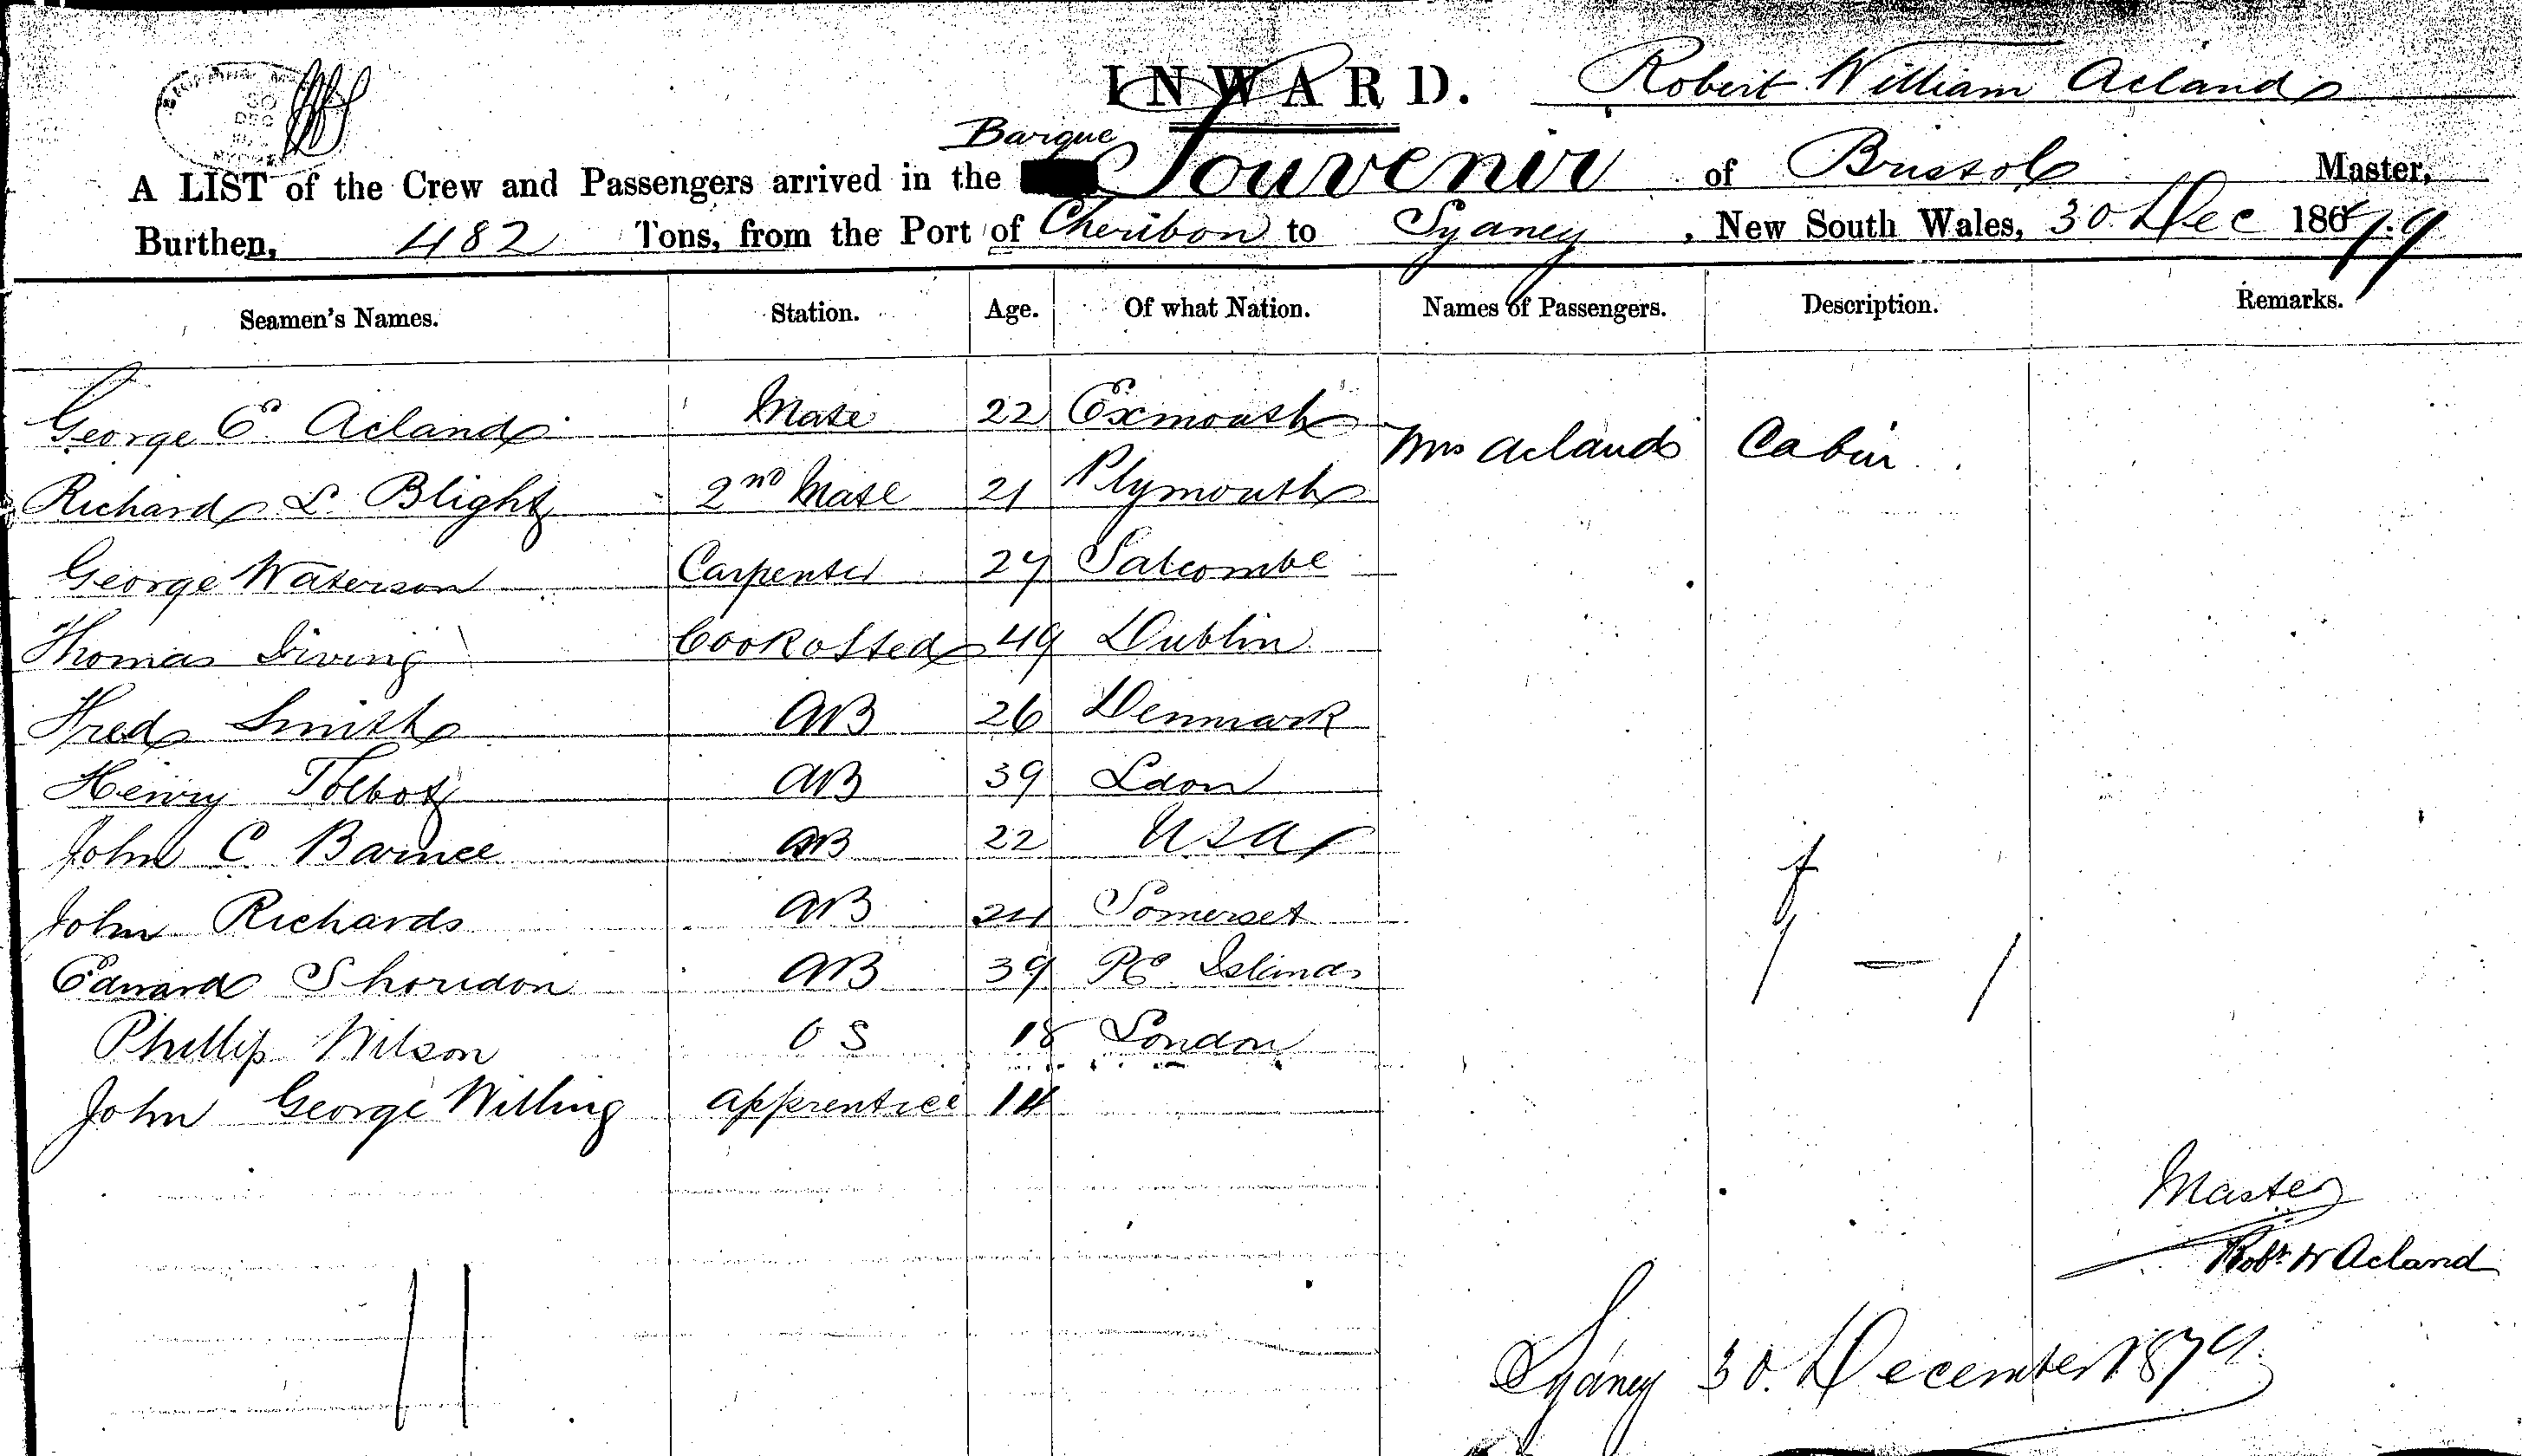 INWARD. Robert William Acland
Barque
A LIST of the Crew and Passengers arrived in the Souvenir of Bristol Master,
Burthen, 482 Tons, from the Port of Cheribon to Sydney, New South Wales, 30. Dec 1879
Seamen's Names. Station. Age. Of what Nation. Names of Passengers. Description. Remarks.
George E Acland Mate 22 Exmouth Mrs Acland Cabin
Richard L. Blight 2nd Mate 21 Plymouth
George Waterson Carpenter 27 Salcombe
Thomas 49 Dublin
Fred Smith AB 26 Denmark
Henry Tolbot AB 39 Ldon
John C AB 22 USA
John Richards AB 24 Somerset
Edward Shoridon AB 39 Islands
Phillip Wilson OS 18 London
John George Willing apprentice 14
1 — 1
Master
Robt W Acland
11
Sydney 30. December 1879